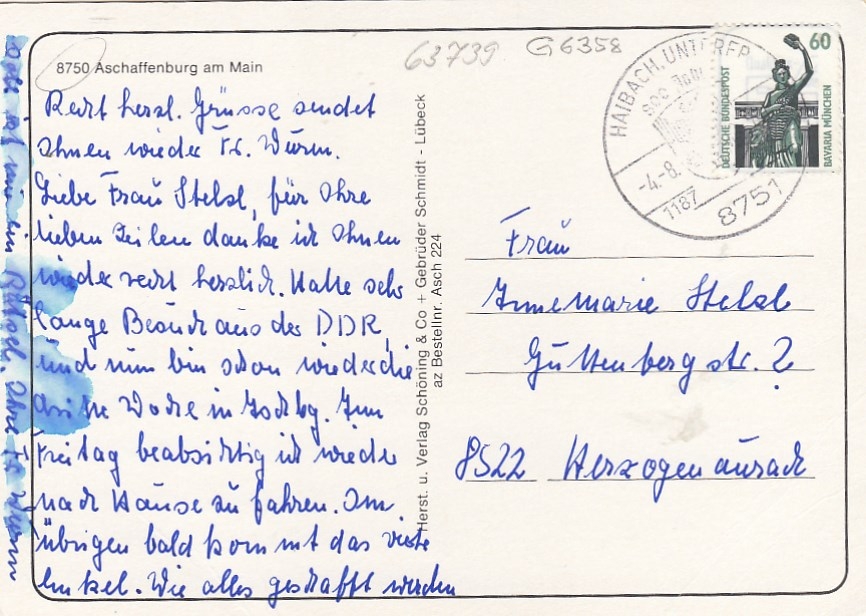 8750 Aschaffenburg am Main
63739 G6358
Recht herzl. Grüsse sendet
Ihnen wieder Fr. Wurm.
Liebe Frau Stelzl, für Ihre
lieben Zeilen danke ich Ihnen
wieder recht herzlich. Hatte sehr
lange Besuch aus der DDR,
und nun bin schon wieder die
dritte Woche in
Freitag beabsichtig ich wieder
nach Hause zu fahren. Im
übrigen bald kommt das vierte
Enkel. Wie alles geschafft werden
soll ist mir ein Rätsel. Ihre Fr. Wurm
Herst. u. Verlag Schöning & Co + Gebrüder Schmidt - Lübeck
az Bestellnr. Asch 224
HAIBACH, UNTERFR
800 Jahre
-4.-8.
1187
8751
60
DEUTSCHE BUNDESPOST
BAVARIA MÜNCHEN
Frau
Annemarie Stelzl
Guttenberg str. 2
8522 Herzogenaurach